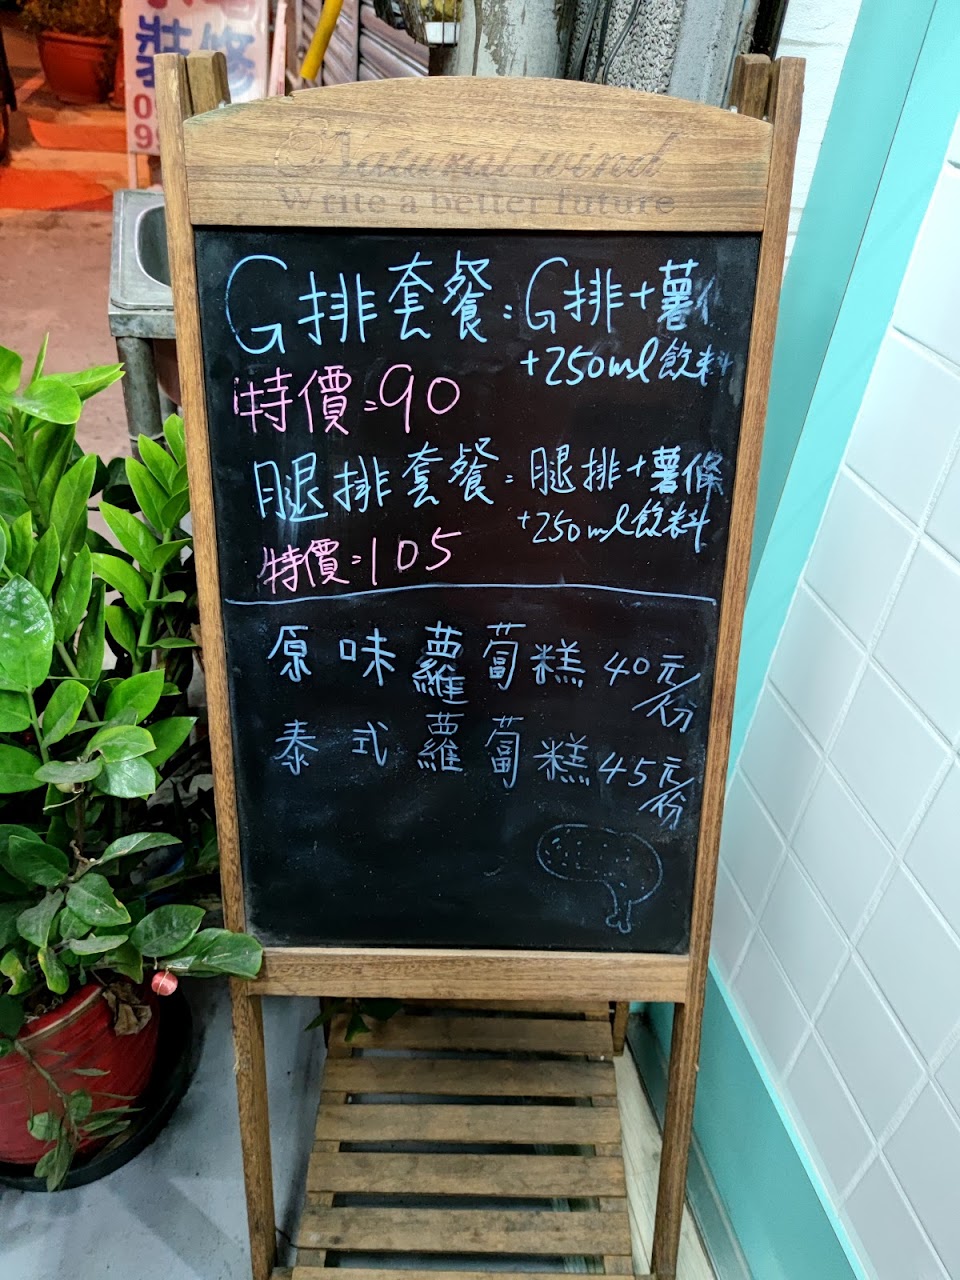 裝修
09
99
Natural wind
Write a better future
G排套餐：G排+薯
+250ml飲料
特價：90
腿排套餐：腿排+薯條
+250ml飲料
特價：105
原味蘿蔔糕 40元/份
泰式蘿蔔糕 45元/份